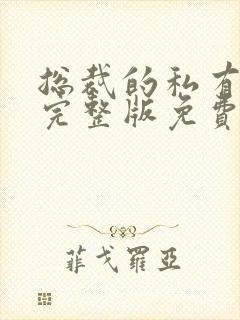 总裁的私有
完整版免費
菲戈羅亞